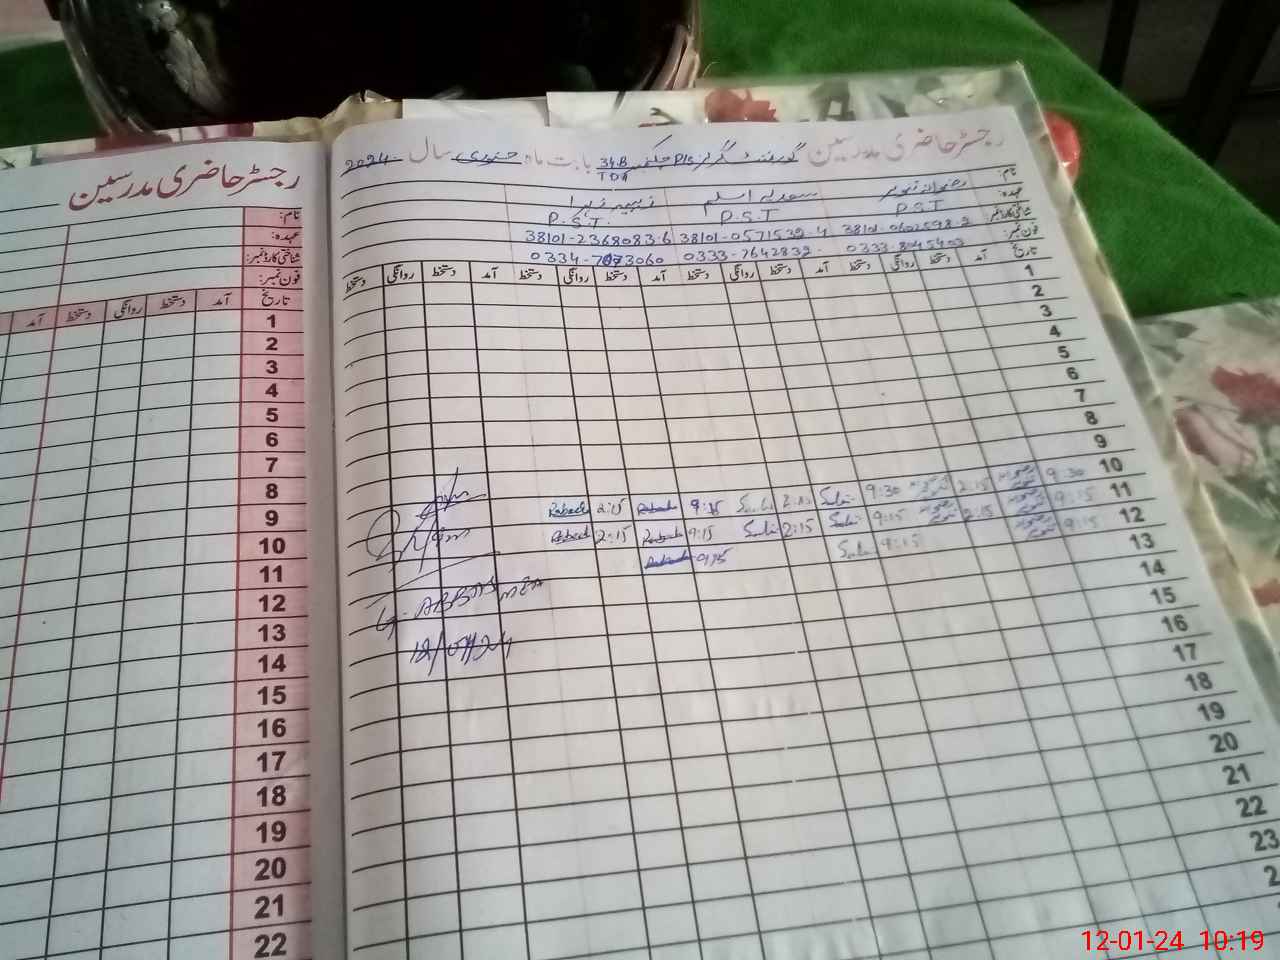 رجسٹر حاضری مدرسین گورنمنٹ گرلز P/S چک 34.B TDA بابت ماہ جنوری سال 2024
نام:
عہدہ: P.S.T P.S.T P.S.T.
شناختی کارڈ نمبر: 38101-0571539-4 38101-2368083-6
فون نمبر: 0333-7642832
تاریخ آمد دستخط روانگی دستخط آمد دستخط روانگی دستخط آمد دستخط روانگی دستخط
1
2
3
4
5
6
7
8
9
10 9:30 2:15 9:30 9:15 2:15
11 9:15 2:15 9:15 2:15 9:15 2:15
12 9:15 9:15 9:15
13
14
15
16
17
18
19
20
21
22
23
G. ABBAS MEA
12/01/24
رجسٹر حاضری مدرسین
نام:
عہدہ:
شناختی کارڈ نمبر:
فون نمبر:
تاریخ آمد دستخط روانگی دستخط آمد
1
2
3
4
5
6
7
8
9
10
11
12
13
14
15
16
17
18
19
20
21
22
12-01-24 10:19